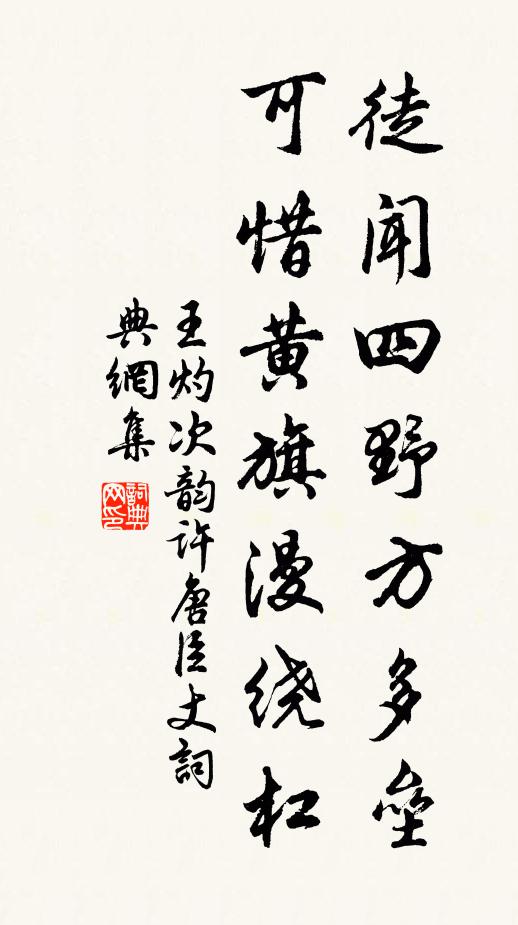 徒闻四野方多垒
可惜黄旗漫绕杠
王灼次韵许唐臣丈詞
典網集
詞典网印